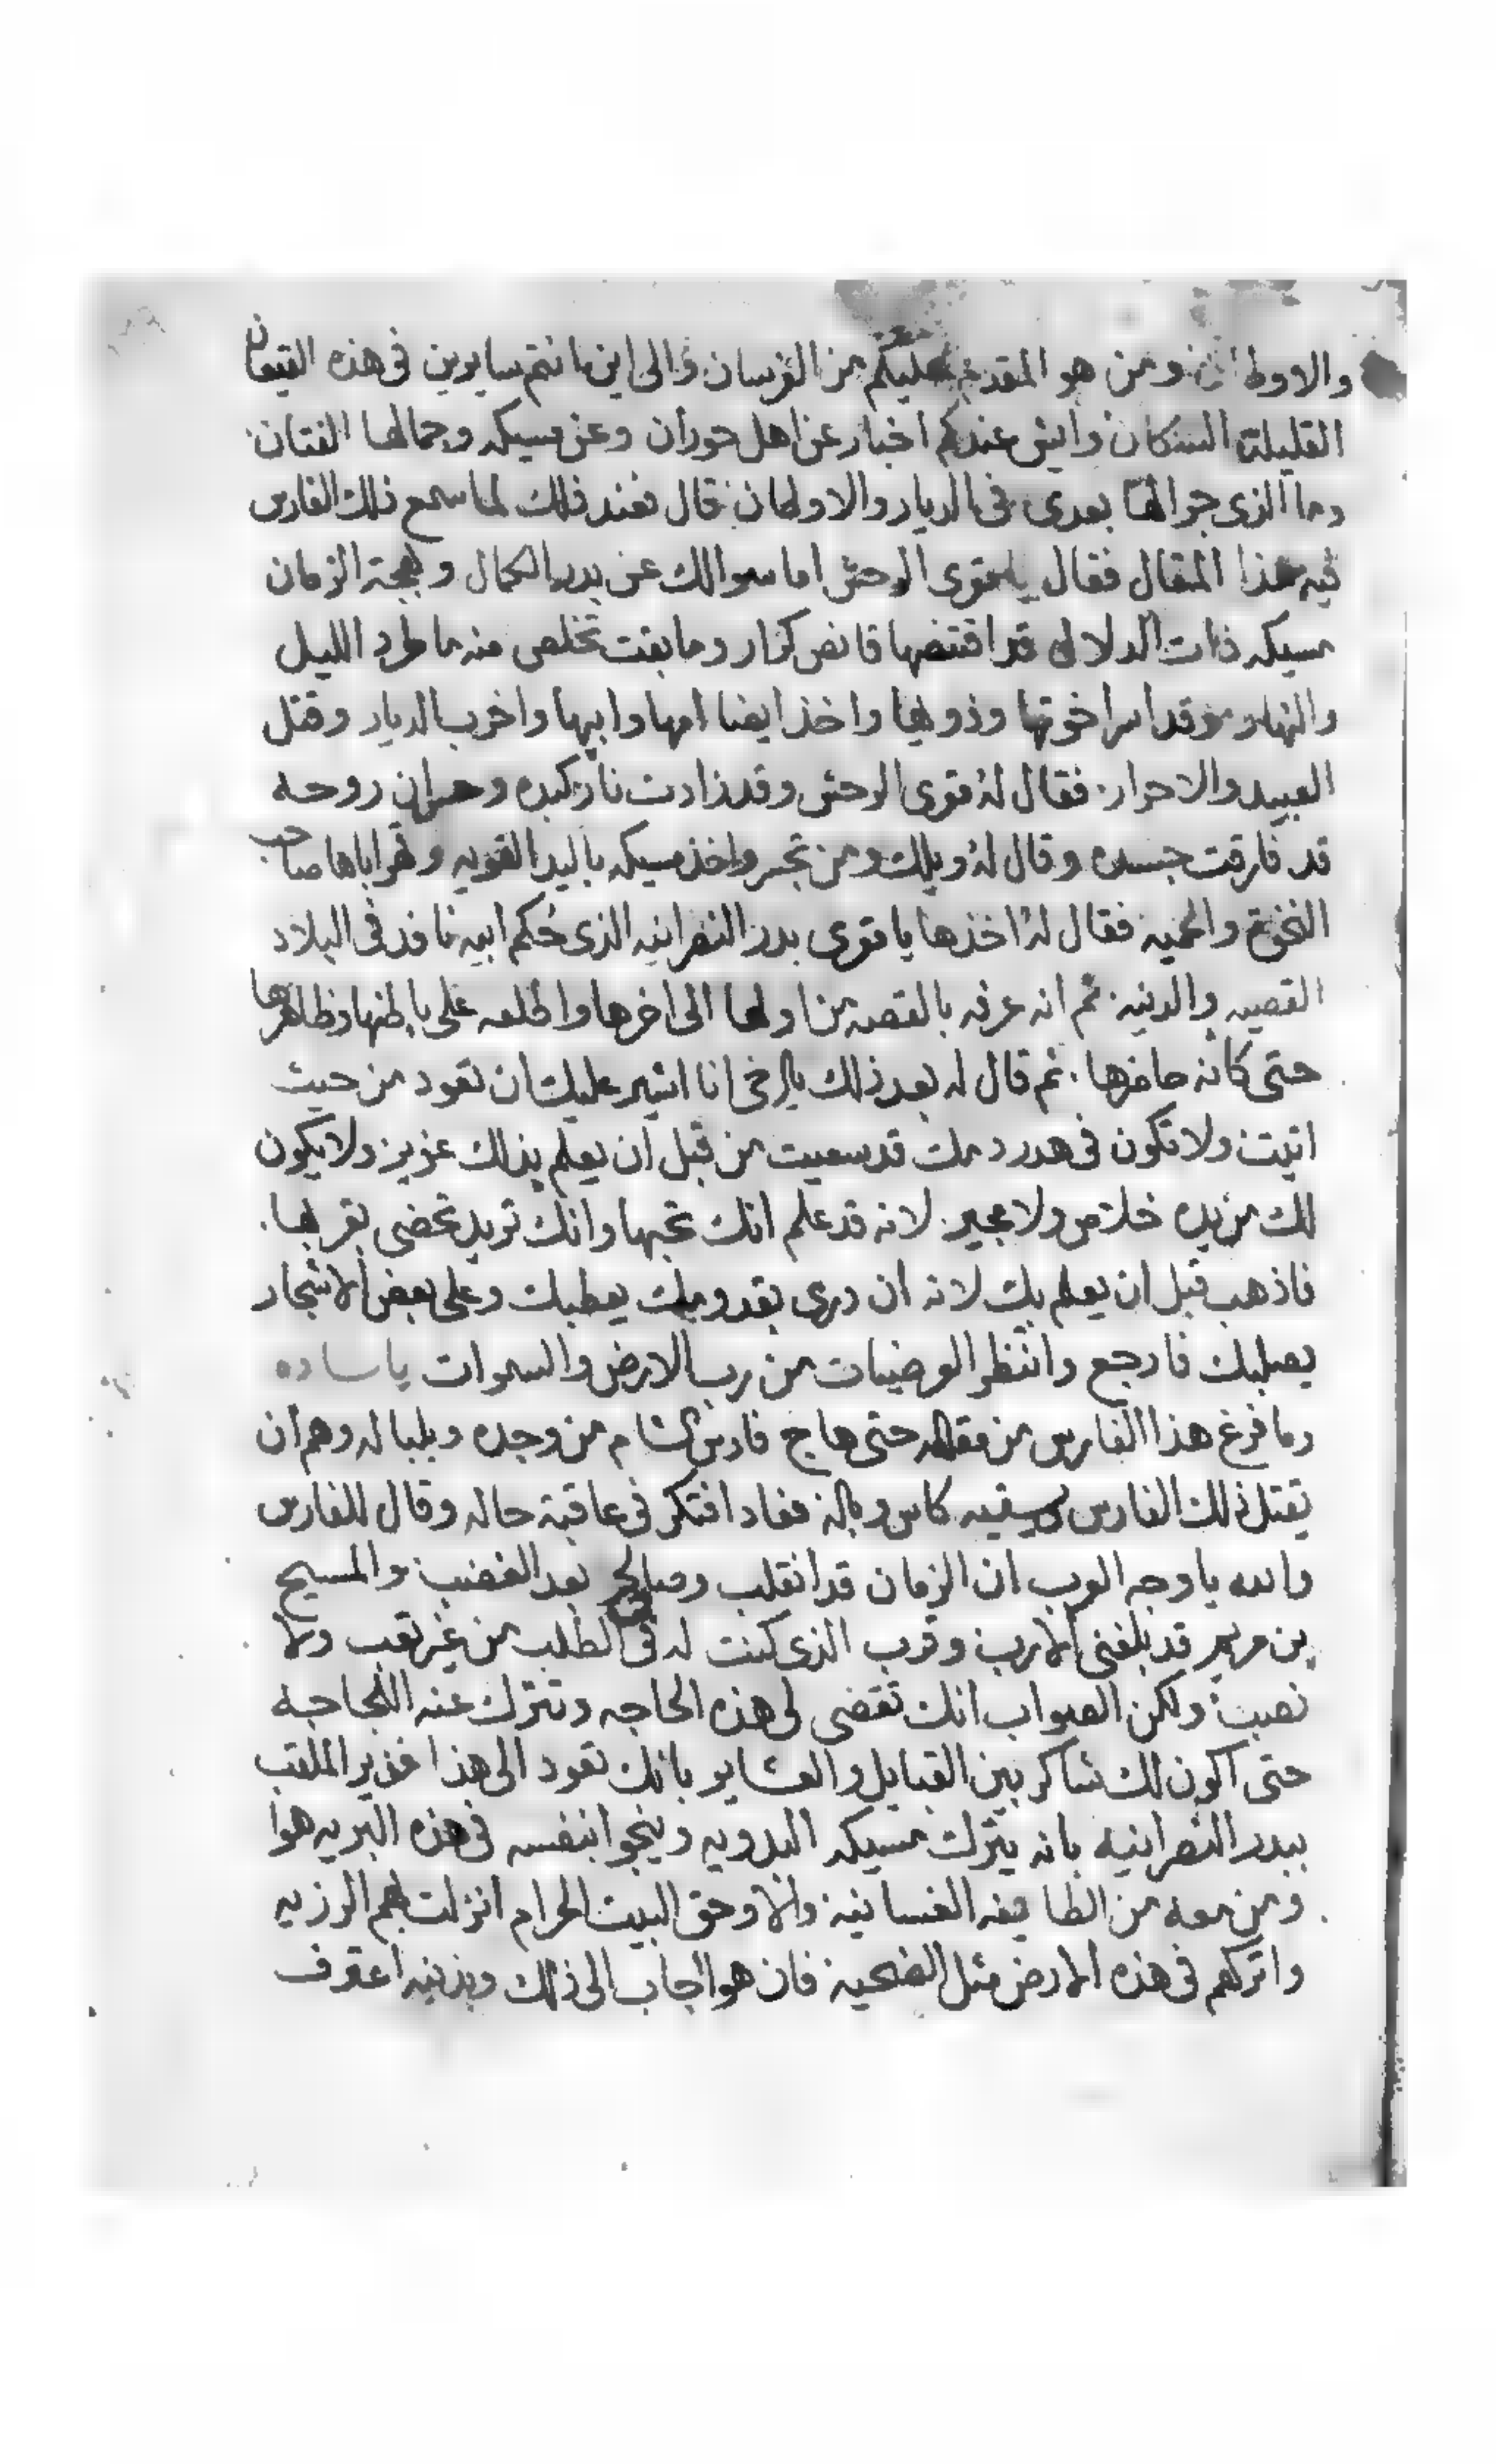 والاوطان ومن هو المقدم عليكم من الفرسان والى اين انتم سايرين فى هذه القيعان
القليلة السكان وايش عندكم اخبار عن اهل حوران وعن مسيكه وجمالها الفتان
وما الذى جرا لها بعدى فى الديار والاوطان قال فعند ذلك لما سمع ذلك الفارس
فيه هذا المقال فقال يا قوى الوحش اما سوالك عن بدر الكمال وبهجة الزمان
مسيكه ذات الدلال قد اقتنصها قانص كرار وما بقت تخلص منه ما طرد الليل
والنهار وقد اسر اخوتها وذويها واخذ ايضا امها وابيها واخرب الديار وقتل
العبيد والاحرار فقال له قوى الوحش وقد زادت نار كبده وحس ان روحه
قد فارقت جسده وقال له ويلك ومن تجسر واخذ مسيكه باليد القويه وقهر اباها صاحب
النخوة والحميه فقال له اخذها يا قوى بدر النصرانيه الذى حكم ابيه نافذ فى البلاد
القصيه والدنيه ثم انه عرفه بالقصه من اولها الى اخرها واطلعه على باطنها وظاهرها
حتى كانه حاضرها ثم قال له بعد ذلك يا اخى انا اشير عليك ان تعود من حيث
اتيت ولا تكون فى هدر دمك قد سعيت من قبل ان يعلم بذلك عزيز ولا يكون
لك من يده خلاص ولا مجير لانه قد علم انك تحبها وانك تريد تحضى بقربها
فاذهب قبل ان يعلم بك لانه ان درى بقدومك يعطبك وعلى بعض الاشجار
يصلبك فارجع وانتظر الوضيات من رب الارض والسموات يا ساده
وما فرغ هذا الفارس من مقاله حتى هاج فارس الشام من وجده وبلباله وهم ان
يقتل ذلك الفارس ويسقيه كاس وباله فعاد افتكر فى عاقبة حاله وقال للفارس
والله يا وجه العرب ان الزمان قد انقلب وصالح بعد الغضب والمسيح
بن مريم قد بلغنى الارب وقرب الذى كنت له فى الطلب من غير تعب ولا
نصب ولكن الصواب انك تقضى لى هذه الحاجه وتترك عنه اللجاجه
حتى اكون لك شاكر بين القبايل والعشاير بانك تعود الى هذا عزيز الملقب
ببدر النصرانيه بانه يترك مسيكه البدويه وينجوا بنفسه فى هذه البريه هوا
ومن معه من الطايفه الغسانيه والا وحق البيت الحرام انزلت بهم الرزيه
واتركهم فى هذه الارض مثل الضحيه فان هوا اجاب الى ذلك وبذنبه اعترف